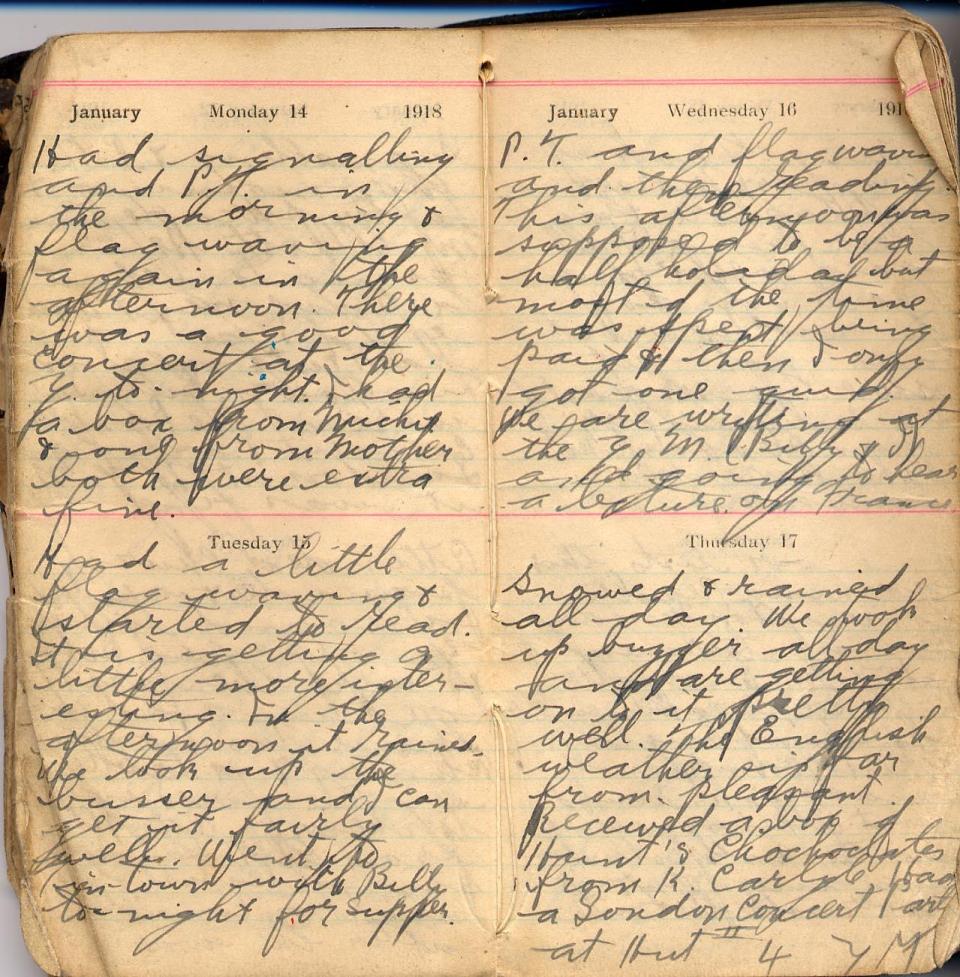 January Monday 14 1918
Had signalling
and P.T. in
the morning &
flag waving
again in the
afternoon. There
was a good
concert at the
Y. to night. I had
a box from
& one from Mother
both were extra
fine.
Tuesday 15
Had a little
flag waving &
started to read.
It is getting a
little more inter-
esting. In the
afternoon it rained.
We took up the
busser and I can
get it fairly
well. Went to
in town with Billy
to-night for supper.
January Wednesday 16 191
P.T. and flag wavin
and then reading.
This afternoon was
supposed to be a
half holiday but
most of the time
was spent being
paid & then I only
got one quid.
We are writing at
the Y M. Billy & I
and going to hear
a lecture on France
Thursday 17
Snowed & rained
all day. We took
up buzzer all day
and are getting
on to it pretty
well. The English
weather is far
from pleasant.
Received a box of
Hunt's Chochoclates
from K. Carlyle Had
a London Concert Part
at Hut II 4 Y M